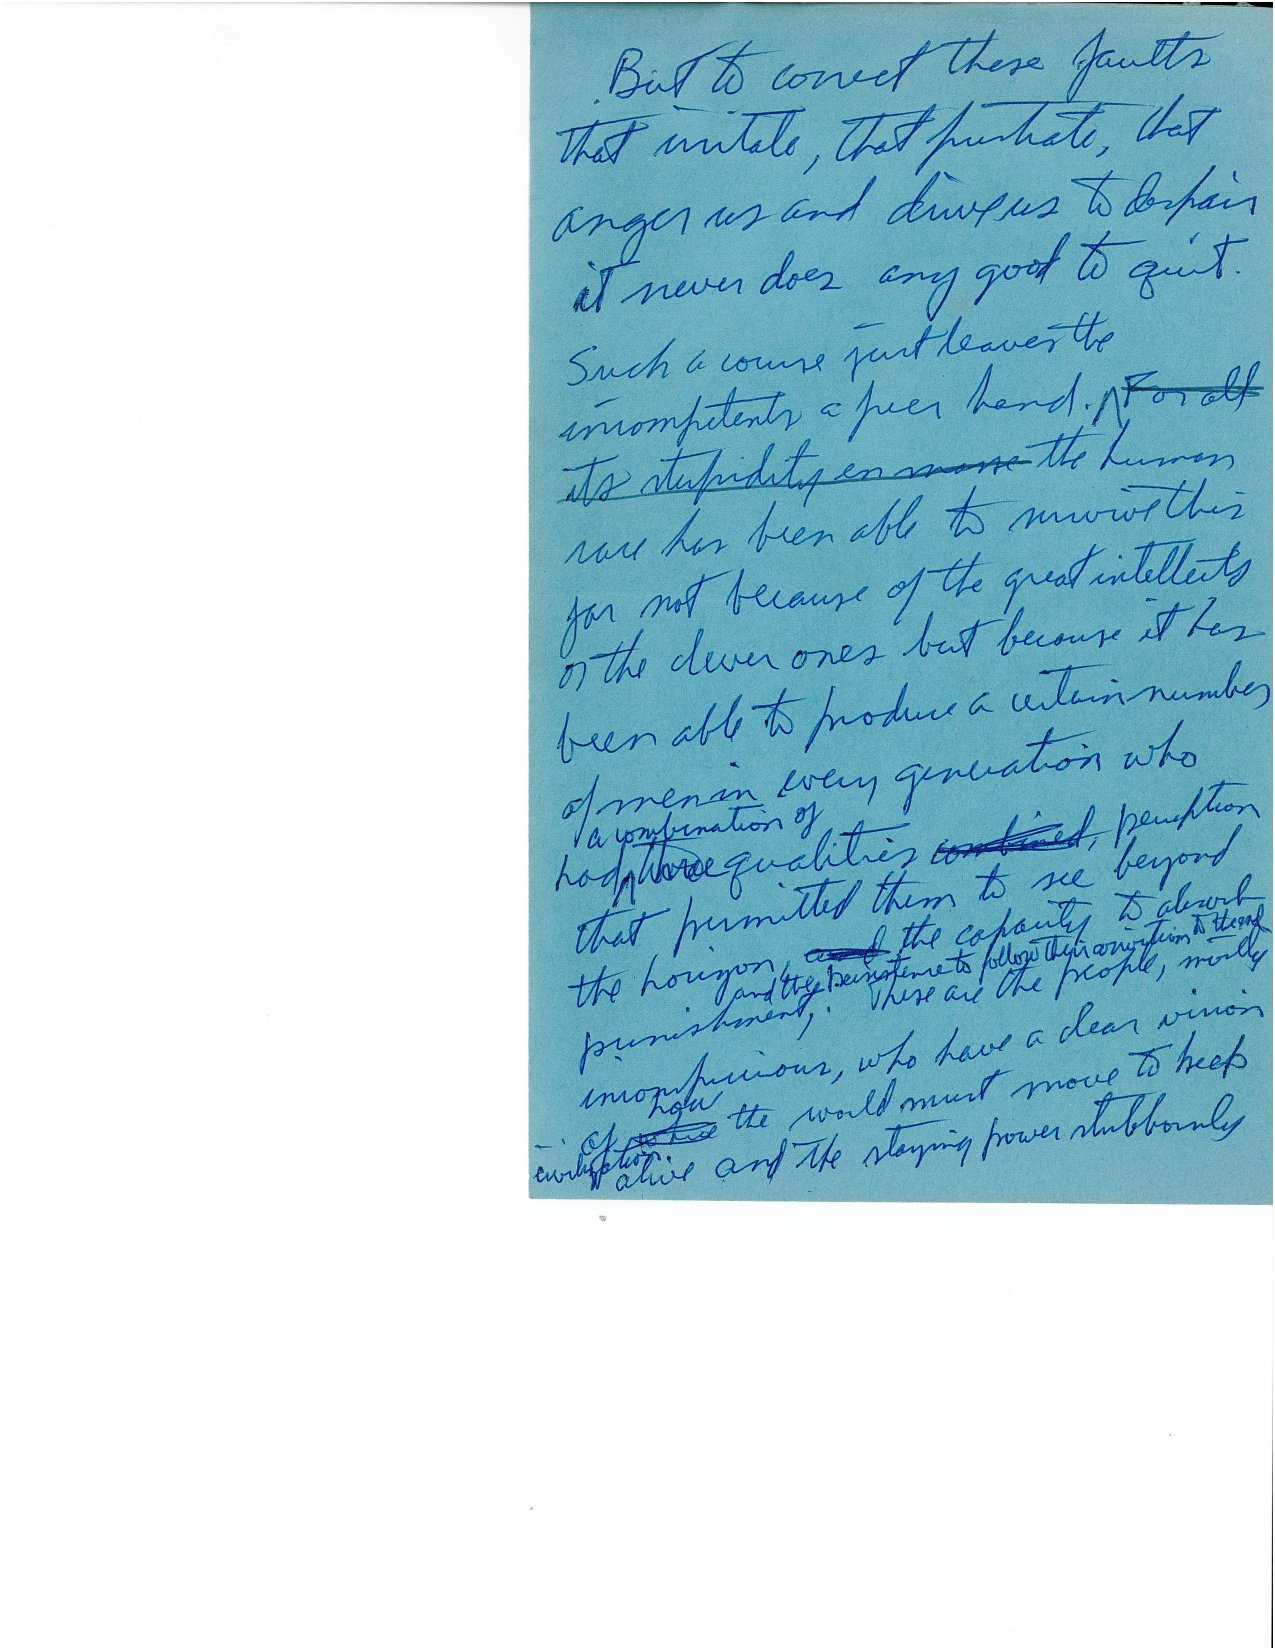 But to correct these faults
that irritate, that frustrate, that
anger us and drive us to despair
it never does any good to quit.
Such a course just leaves the
incompetents a free hand. For all
its stupidity en masse the human
race has been able to survive this
far not because of the great intellects
or the clever ones but because it has
been able to produce a certain number
of men in every generation who
a combination of
had three qualities combined, perception
that permitted them to see beyond
the horizon, and the capacity to absorb
and the persistence to follow their convictions to the end
punishment, . These are the people, mostly
inconspicuous, who have a clear vision
how
of where the world must move to keep
civilization
alive and the staying power stubbornly